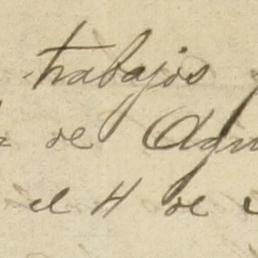 trabajos
de Agu
el H de